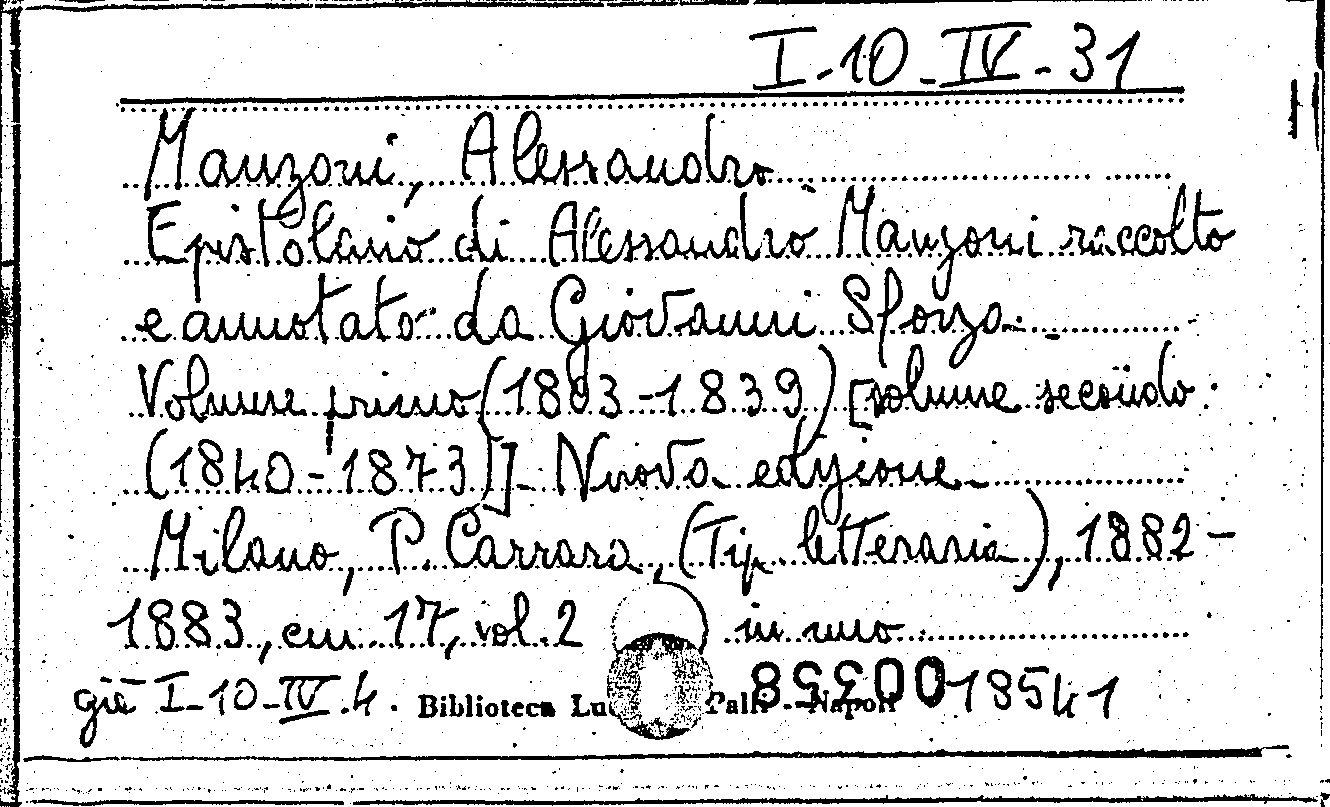 I-10-IV-31
Manzoni, Alessandro
Epistolario di Alessandro Manzoni raccolto
e annotato da Giovanni Sforza.
Volume primo (1803-1839) [volume secondo
(1840-1873)]. Nuova edizione.
Milano, P. Carrara, (Tip. letteraria), 1882-
1883, cm 17, vol. 2 in uno
già I-10-IV.4. Biblioteca Lu Palli - Napoli 18541